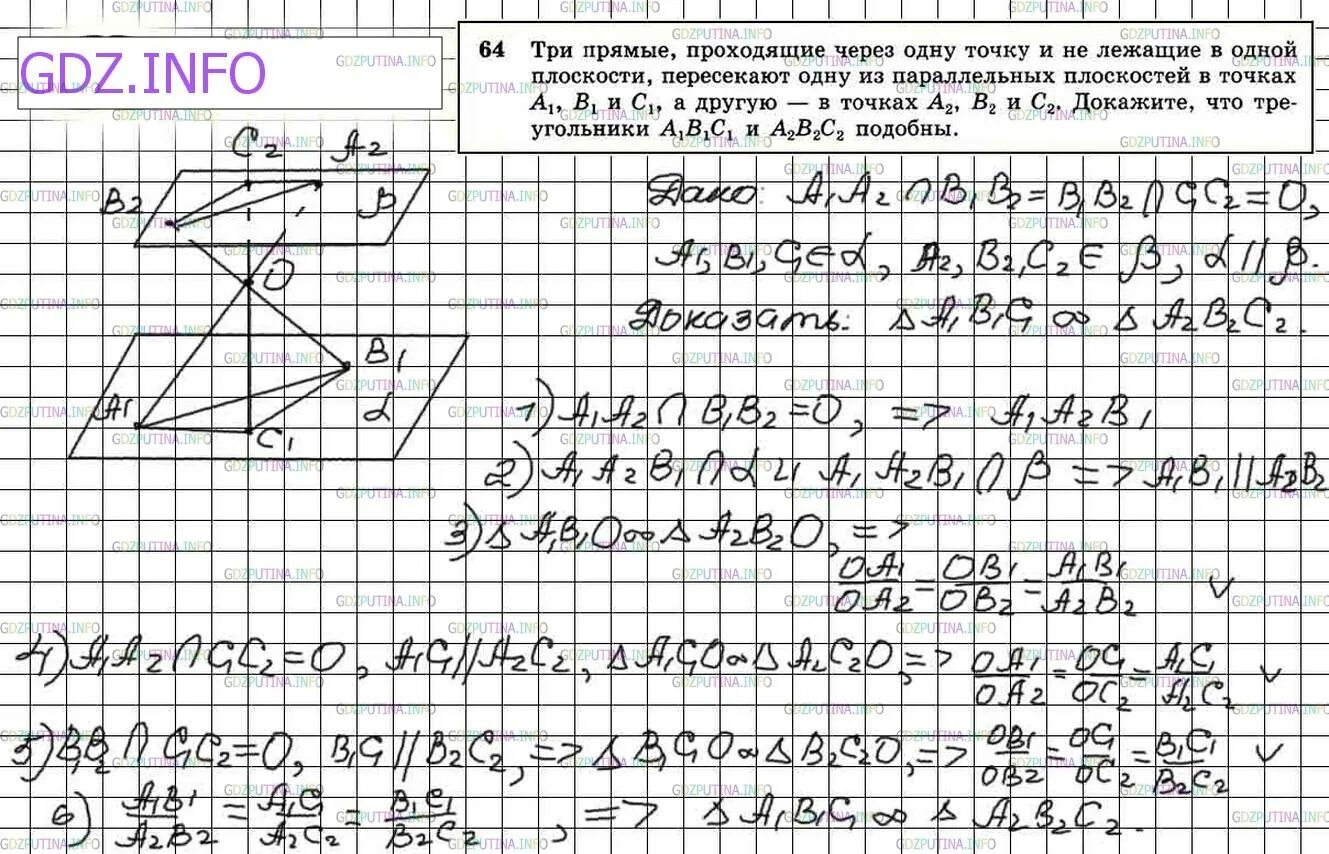 GDZ.INFO
64 Три прямые, проходящие через одну точку и не лежащие в одной
плоскости, пересекают одну из параллельных плоскостей в точках
A₁, B₁ и C₁, а другую — в точках A₂, B₂ и C₂. Докажите, что тре-
угольники A₁B₁C₁ и A₂B₂C₂ подобны.
C₂ A₂
B₂ β
O
B₁
A₁ α
C₁
Дано: A₁A₂ ∩ B₁B₂ = B₁B₂ ∩ C₁C₂ = O,
A₁, B₁, C₁ ∈ α, A₂, B₂, C₂ ∈ β, α || β.
Доказать: △ A₁B₁C₁ ∞ △ A₂B₂C₂.
1) A₁A₂ ∩ B₁B₂ = O, => A₁A₂B₁
2) A₁A₂B₁ ∩ α и A₁A₂B₁ ∩ β => A₁B₁ || A₂B₂
3) △ A₁B₁O ∞ △ A₂B₂O, =>
OA₁/OA₂ = OB₁/OB₂ = A₁B₁/A₂B₂ ∨
4) A₁A₂ ∩ C₁C₂ = O, A₁C₁ || A₂C₂, △ A₁C₁O ∞ △ A₂C₂O, => OA₁/OA₂ = OC₁/OC₂ = A₁C₁/A₂C₂ ∨
5) B₁B₂ ∩ C₁C₂ = O, B₁C₁ || B₂C₂, => △ B₁C₁O ∞ △ B₂C₂O, => OB₁/OB₂ = OC₁/OC₂ = B₁C₁/B₂C₂ ∨
6) A₁B₁/A₂B₂ = A₁C₁/A₂C₂ = B₁C₁/B₂C₂, => △ A₁B₁C₁ ∞ △ A₂B₂C₂.
GDZPUTINA.INFO